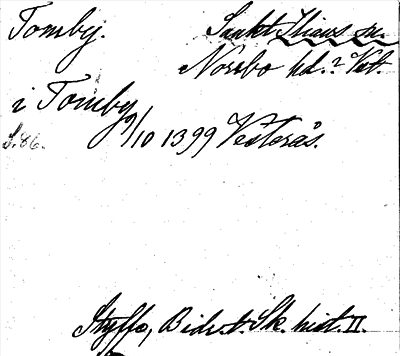 Tomby.
Sankt Ilians sn.
Norrbo hd.? Vstm.
i Tomby
9/10 1399 Vesterås.
S. 86.
Styffe, Bidr. t. Sk. hist. II.